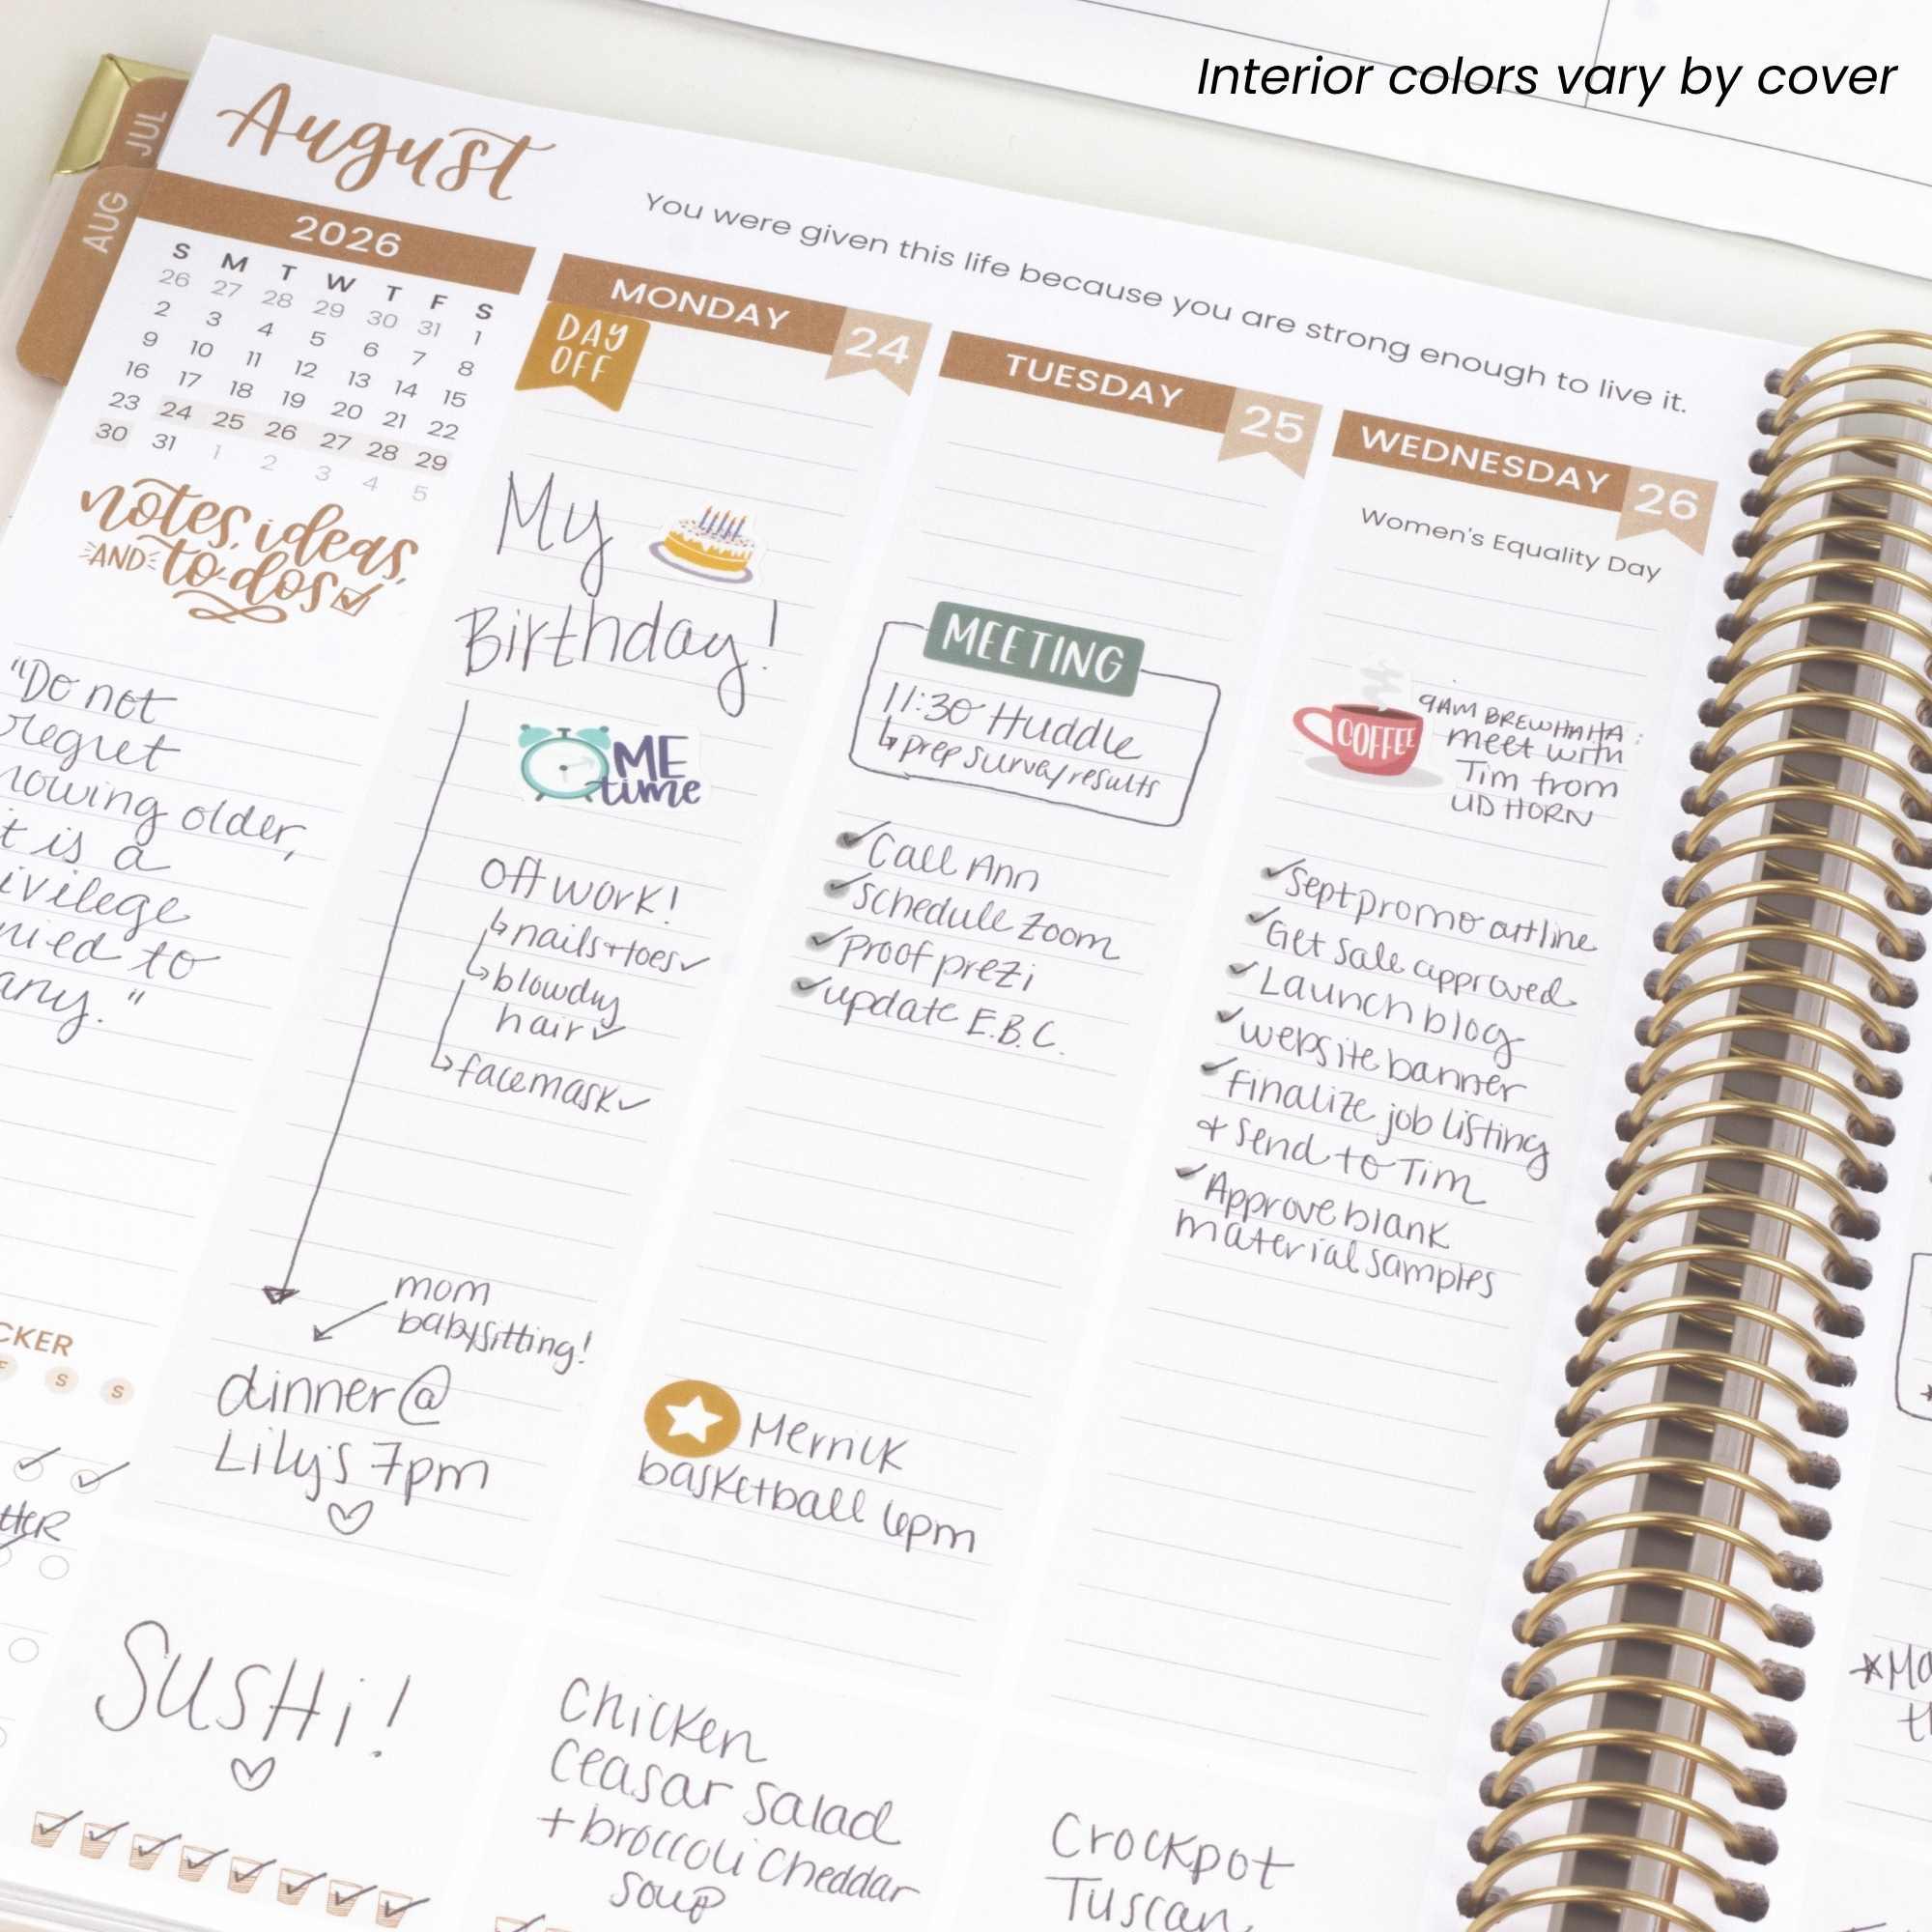 Interior colors vary by cover
JUL
AUG
August
You were given this life because you are strong enough to live it.
2026
S M T W T F S
26 27 28 29 30 31 1
2 3 4 5 6 7 8
9 10 11 12 13 14 15
16 17 18 19 20 21 22
23 24 25 26 27 28 29
30 31 1 2 3 4 5
notes, ideas,
AND to-dos
"Do not
regret
older,
is a
to
any."
CKER
S S
MONDAY 24
DAY
OFF
My
Birthday!
ME
time
Off work!
nails + toes
blowdry
hair
facemask
mom
babysitting!
dinner @
Lily's 7pm
SUSHi!
TUESDAY 25
MEETING
11:30 Huddle
prep survey results
Call Ann
Schedule Zoom
Proof prezi
update E.B.C.
basketball 6pm
Chicken
Ceasar Salad
+ broccoli Cheddar
Soup
WEDNESDAY 26
Women's Equality Day
COFFEE
9AM BREWHAHA:
meet with
Tim from
UD HORN
Sept promo outline
Get Sale approved
Launch blog
website banner
Finalize job listing
+ Send to Tim
Approve blank
material samples
Crockpot
Tuscan